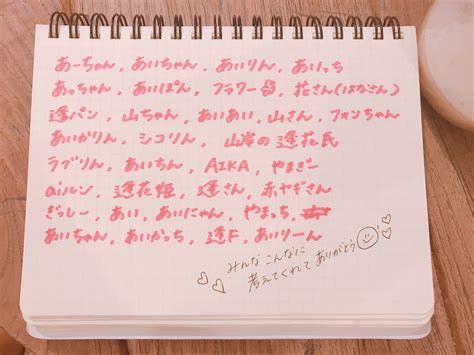 あーちゃん, あいちゃん, あいりん, あいっち
あっちゃん, あいぽん, フラワー, 花さん(はなさん)
逢パン, 山ちゃん, あいあい, 山さん, フォンちゃん
あいかりん, シコりん, 山岸の逢花民
ラブりん, あいちん, AIKA, やまぎー
aiルン, 逢花姫, 逢さん, 赤ヤギさん
ぎっしー, あい, あいにゃん, やまっち,
あいちゃん, あいかっち, 逢F, あいりーん
みんなこんなに
考えてくれてありがとう